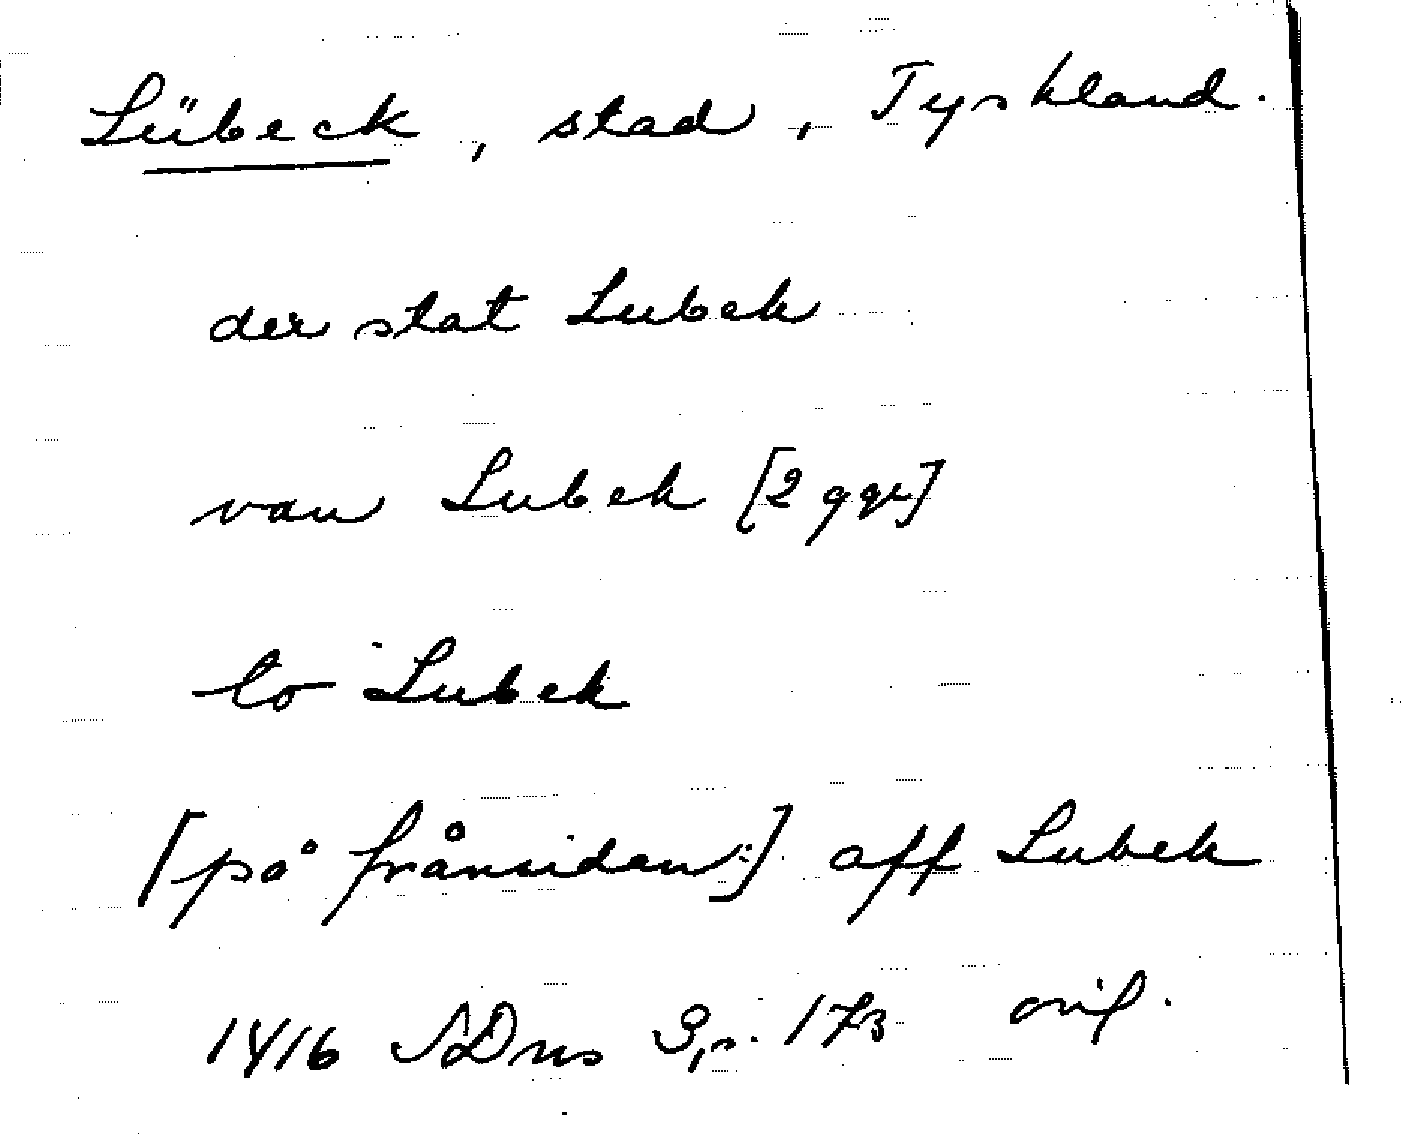 Lübeck, stad, Tyskland.
der stat Lubek
van Lubek [2 ggr]
to Lubek
[på frånsidan:] aff Lubek
1416 SDns 3, s. 173 orig.